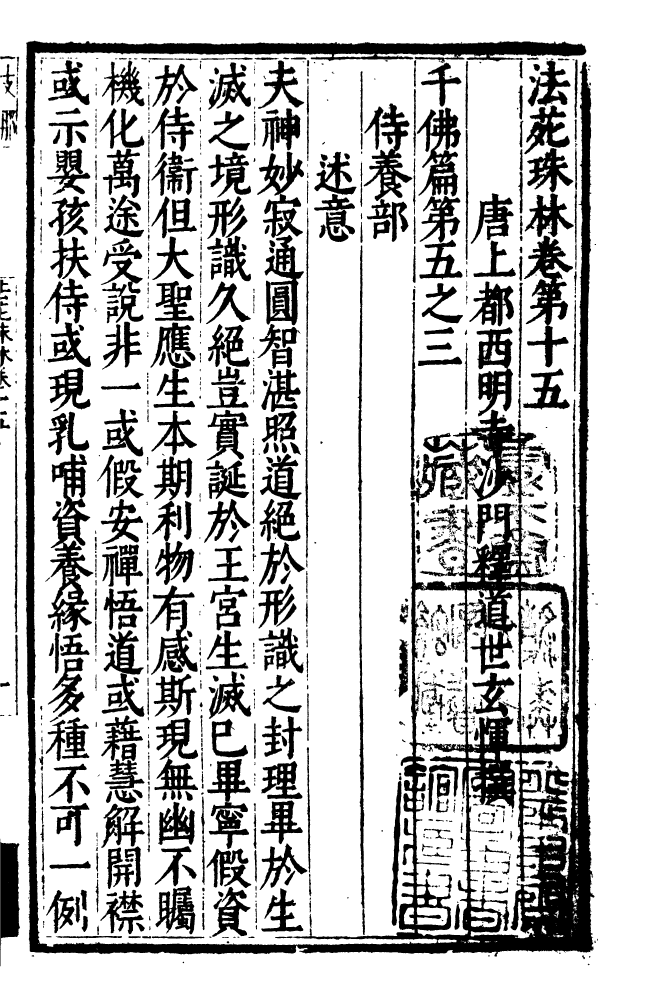 法苑珠林卷第十五
唐上都西明寺沙門釋道世玄惲撰
千佛篇第五之三
侍養部
述意
夫神妙寂通圓智湛照道絕於形識之封理畢於生
滅之境形識久絕豈實誕於王宮生滅已畢寧假資
於侍衞但大聖應生本期利物有感斯現無幽不矚
機化萬途受說非一或假安禪悟道或藉慧解開襟
或示嬰孩扶侍或現乳哺資養緣悟多種不可一例